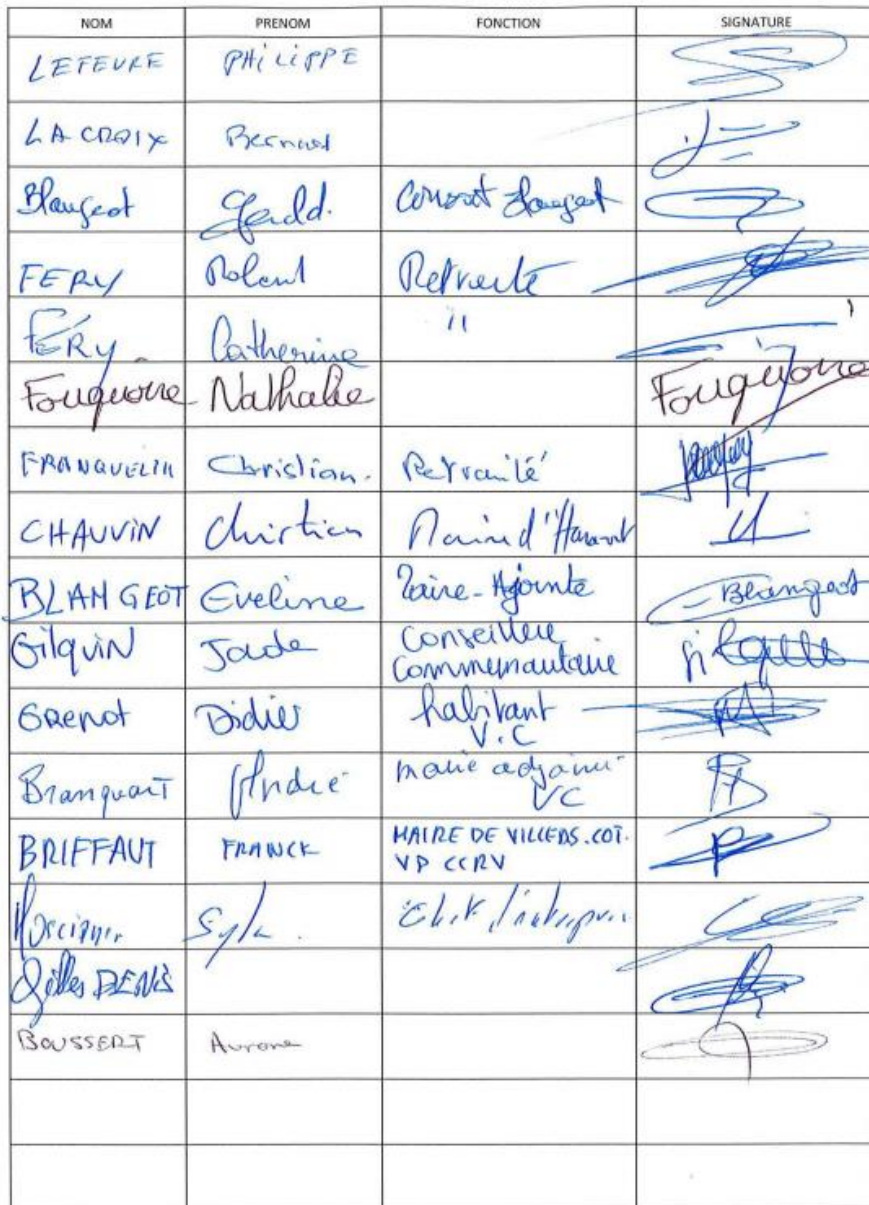 NOM PRENOM FONCTION SIGNATURE
LEFEVRE PHILIPPE
LACROIX Bernard
Blangeot Gérald.
FERY Roland Retraité
FERY Catherine 11
Fouquoire Nathalie Fouquoire
FRANQUELIN Christian. Retraité
CHAUVIN Christian
BLANGEOT Eveline Maire-Ajointe Blangeot
Gilquin Jade Conseillère
Communautaire
GRENOT Didier habitant
V.C
Branquart André maire adjoint
VC
BRIFFAUT FRANCK MAIRE DE VILLERS.COT.
VP CCRV
Gilles DENIS
BOUSSERT Aurore